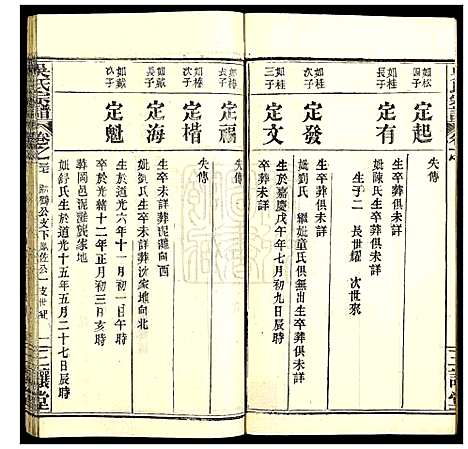 如松
長子
定起
失傳
如桂
四子
定有
妣陳氏生卒葬俱未詳
生子二 長世耀 次世來
如桂
次子
定發
生卒葬未詳
妣劉氏 繼妣童氏俱無出生卒葬俱未詳
如桂
三子
定文
生於嘉慶戊午年七月初九日辰時
卒葬未詳
如椿
長子
定福
失傳
如椿
次子
定楷
生卒未詳葬泥灘地向西
如嶽
長子
定海
生卒未詳葬沈家地向北
妣劉氏生卒葬俱未詳
如嶽
次子
定魁
生於道光六年十一月初一日午時
卒於光緒十二年正月初三日亥時
葬岡邑泥灘黃家地
妣舒氏生於道光十五年五月二十七日辰時
吳氏宗譜
卷之
公支下
佐公
支世
三讓堂
三讓堂